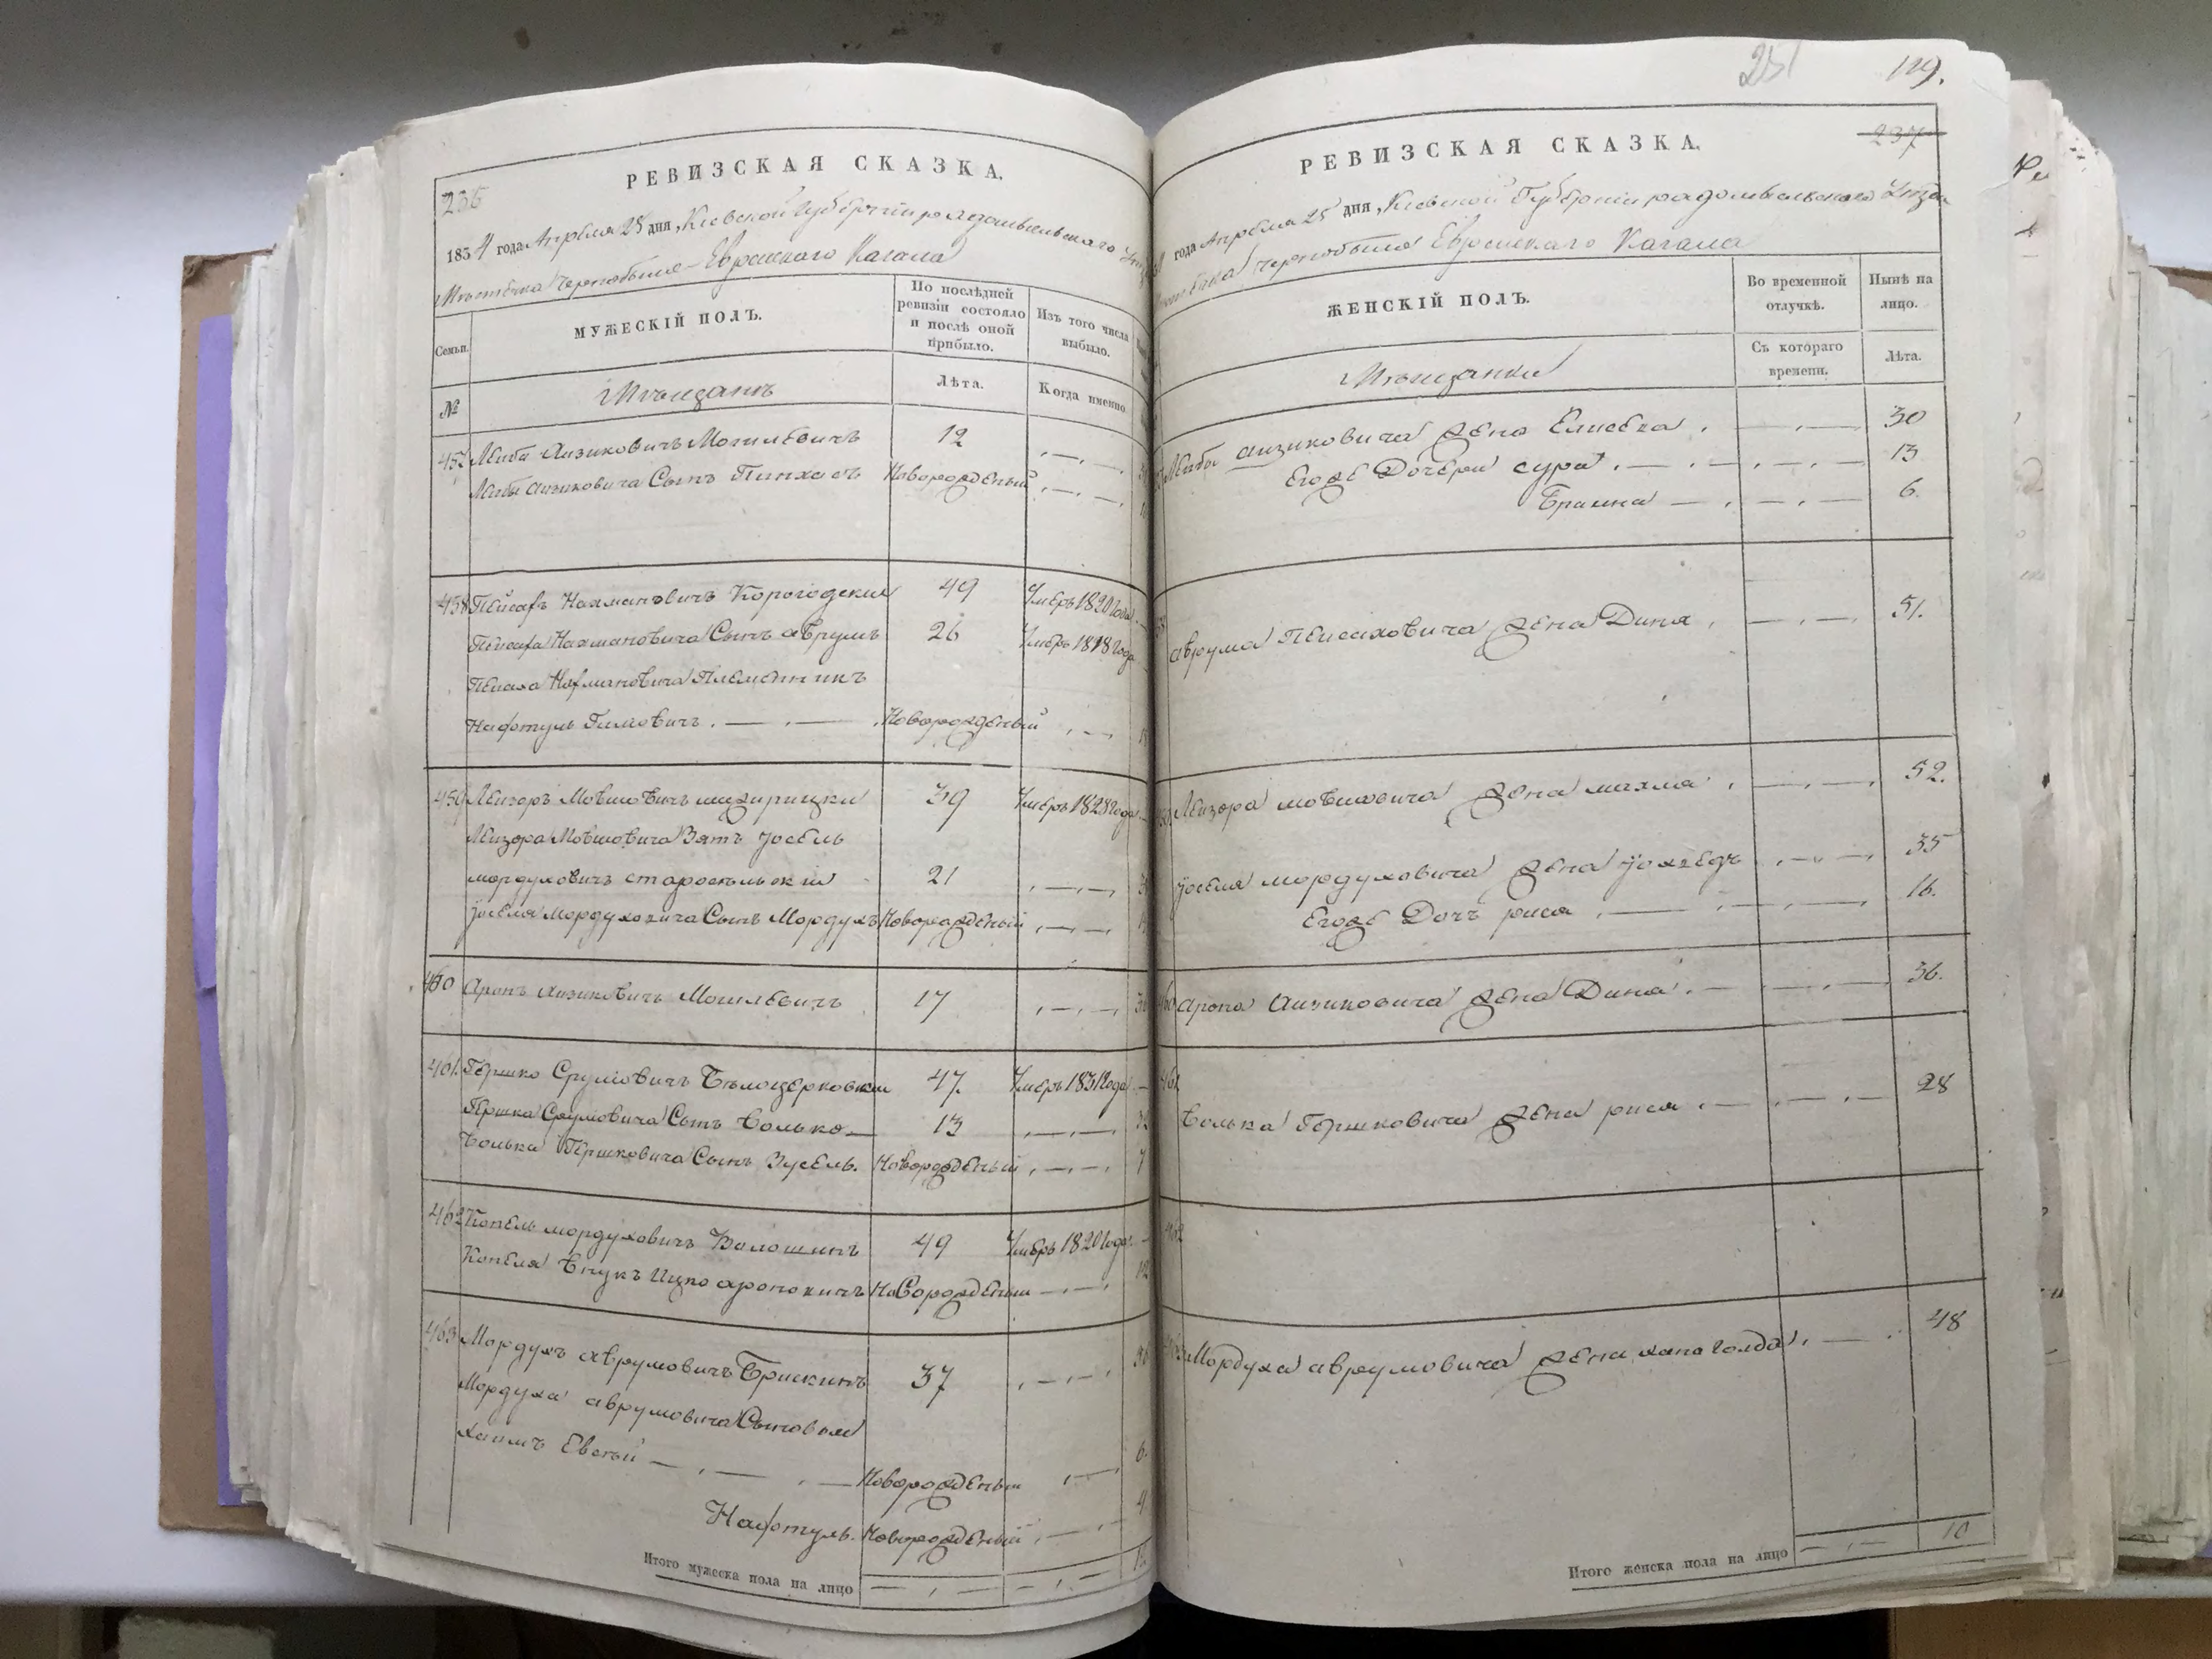 235
РЕВИЗСКАЯ СКАЗКА.
1834 года Апреля 25 дня, Киевской Губернии радомысльскаго
Мѣстечка Чернобыля Еврейскаго Кагала
Семьи.
МУЖЕСКІЙ ПОЛЪ.
По послѣдней ревизіи состояло и послѣ оной прибыло.
Изъ того числа выбыло.
№
Мѣщанъ
Лѣта.
Когда именно
457 Лейба Аизиковичъ Могилевичъ 12
Лейбы Аизиковича Сынъ Пинхасъ Новорожденый
458 Пейсахъ Нахмановичъ Корогодскии 49 Умеръ 1820 года
Пейсаха Нахмановича Сынъ аврумъ 26 Умеръ 1818 года
Пейсаха Нахмановича Племенникъ
Нафтуль Новорожденый
459 Леизоръ Мовшовичъ межирицкии 39 Умеръ 1828 года
Леизора Мовшовича Зять Іосель
мордуховичъ старосельскии 21
Іоселя Мордуховича Сынъ Мордухъ Новорожденый
460 Аронъ Аизиковичъ Могилевичъ 17
461 Гершко Срулiовичъ Бѣлоцерковскии 47. Умеръ 1831 года
Гершка Срулiовича Сынъ Волько 13
Волька Гершковича Сынъ Зусель. Новорожденый 7
462 Копель мордуховичъ Волошинъ 49 Умеръ 1820 года
Копеля Внукъ Ицко ароновичъ Новорожденыи
463 Мордухъ аврумовичъ Брискинъ 37
Мордуха аврумовича Сыновья
хаимъ Евсей Новорожденыи 6.
Нафтуль. Новорожденый 4
Итого мужеска пола на лицо
251 119.
237
РЕВИЗСКАЯ СКАЗКА.
года Апреля 25 дня, Киевской Губернии радомысльскаго Уезда
Чернобыля Еврейскаго Кагала
ЖЕНСКІЙ ПОЛЪ.
Во временной отлучкѣ.
Нынѣ на лицо.
Мѣщанки
Съ котораго времени.
Лѣта.
Лейбы аизиковича жена Елисева 30
Егоже Дочери сура 13
Браина 6.
аврума Пейсаховича жена Диня 51.
Леизора мовшовича жена махля 52.
Іоселя мордуховича жена Іохведъ 35
Егоже Дочъ рися 16.
460 Арона Аизиковича жена Дина 36.
461
Волька Гершковича жена рися 28
462
Мордуха аврумовича жена хана голда 48
Итого женска пола на лицо 10